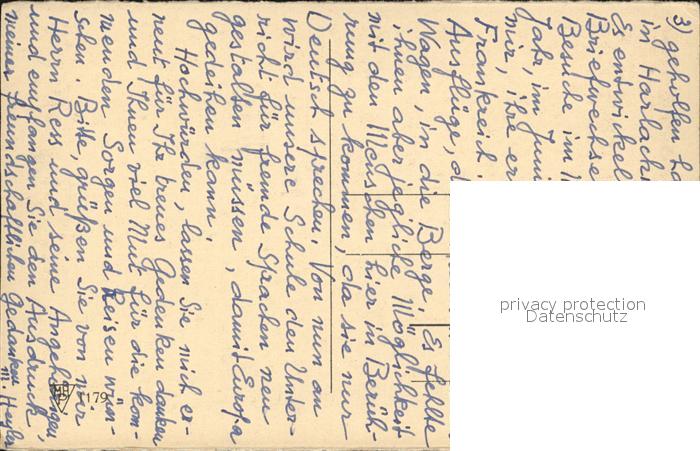 3) geholfen ha
in Harlach
Es entwickel
Briefwechse
Besuche im
Jahr, im Juni
mir, ihre er
Frankreich
Ausflüge, d
Wagen, in die Berge. Es fehlte
ihnen aber jegliche Möglichkeit
mit den Menschen hier in Berüh-
rung zu kommen, da sie nur
Deutsch sprechen. Von nun an
wird unsere Schule den Unter-
richt für fremde Sprachen neu
gestalten müssen, damit Europa
gedeihen kann.
Hochwürden, lassen Sie mich er-
neut für Ihr treues Gedenken danken
und Ihnen viel Mut für die kom-
menden Sorgen und Reisen wün-
schen. Bitte, grüßen Sie von mir
Herrn Ress und seine Angehörigen
und empfangen Sie den Ausdruck
meiner freundschaftlichen Gedanken
1179
privacy protection
Datenschutz